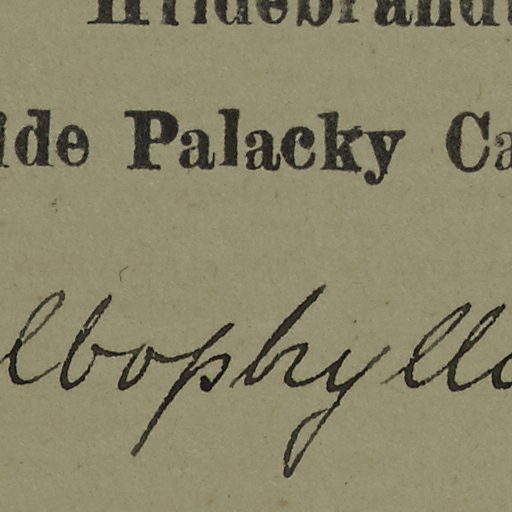 Hildebrandt
ide Palacky Ca
lbophyllo